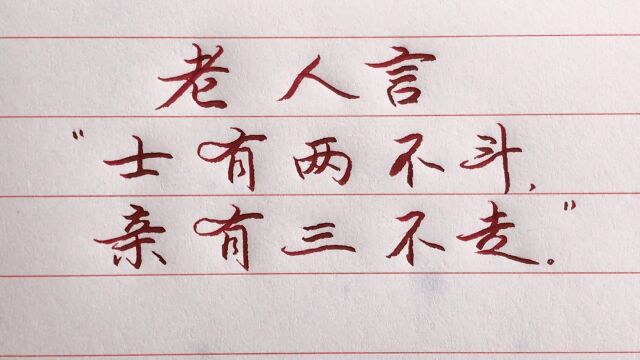 老人言
“士有两不斗,
亲有三不走。”